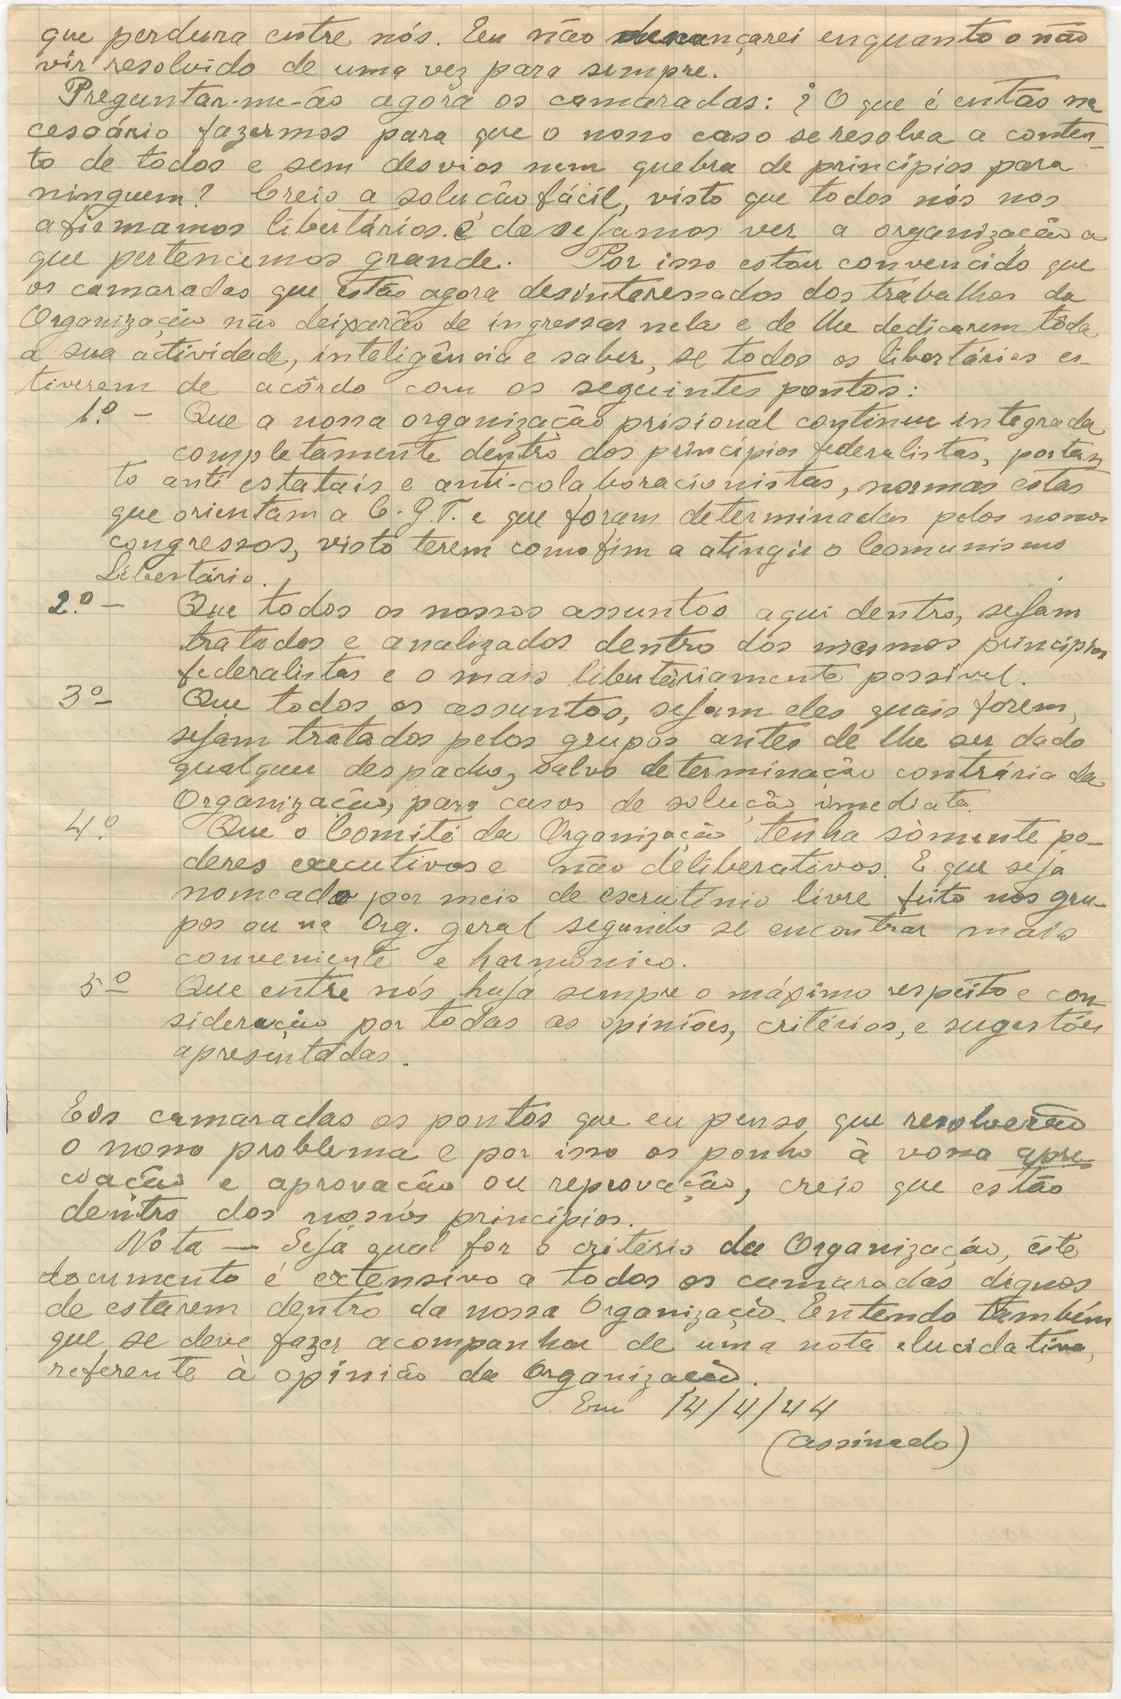 que perdura entre nós. Eu não descançarei enquanto o não
vir resolvido de uma vez para sempre.
Preguntar-me-ão agora os camaradas: ¿ O que é então ne
cessário fazermos para que o nosso caso se resolva a conten-
to de todos e sem desvios nem quebra de princípios para
ninguem? Creio a solução fácil, visto que todos nós nos
afirmamos libertários e desejamos ver a organização a
que pertencemos grande. Por isso estou convencido que
os camaradas que estão agora desinteressados dos trabalhos da
Organização não deixarão de ingressar nela e de lhe dedicarem tôda
a sua actividade, inteligência e saber, se todos os libertários es-
tiverem de acôrdo com os seguintes pontos:
1.º - Que a nossa organização prisional continue integrada
completamente dentro dos princípios federalistas, portan
to anti estatais e anti-colaboracionistas, normas estas
que orientam a C.G.T. e que foram determinadas pelos nossos
congressos, visto terem como fim a atingir o Comunismo
Libertário.
2.º - Que todos os nossos assuntos aqui dentro, sejam
tratados e analizados dentro dos mesmos princípios
federalistas e o mais libertáriamente possivel.
3º - Que todos os assuntos, sejam eles quais forem,
sejam tratados pelos grupos antes de lhe ser dado
qualquer despacho, salvo determinação contrária da
Organização, para casos de solução imediata.
4.º Que o Comité da Organização tenha sòmente po-
deres executivos e não deliberativos. E que seja
nomeado por meio de escrutínio livre feito nos gru-
pos ou na Org. geral segundo se encontrar mais
conveniente e harmónico.
5º Que entre nós haja sempre o máximo respeito e con
sideração por todas as opiniões, critérios, e sugestões
apresentadas.
Eis camaradas os pontos que eu penso que resolverão
o nosso problema e por isso os ponho à vossa apre
ciação e aprovação ou reprovação, creio que estão
dentro dos nossos princípios.
Nota — Seja qual for o critério da Organização, êste
documento é extensivo a todos os camaradas dignos
de estarem dentro da nossa Organização. Entendo também
que se deve fazer acompanhar de uma nota elucidativa,
referente à opinião da Organização.
Em 14/4/44
(assinado)